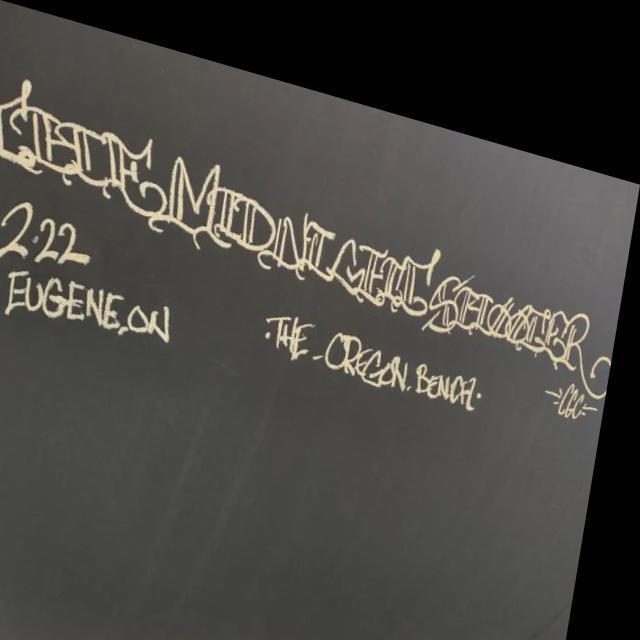 THE MIDNIGHT SHOWER
2.22
EUGENE, ON
·THE OREGON BENCH·